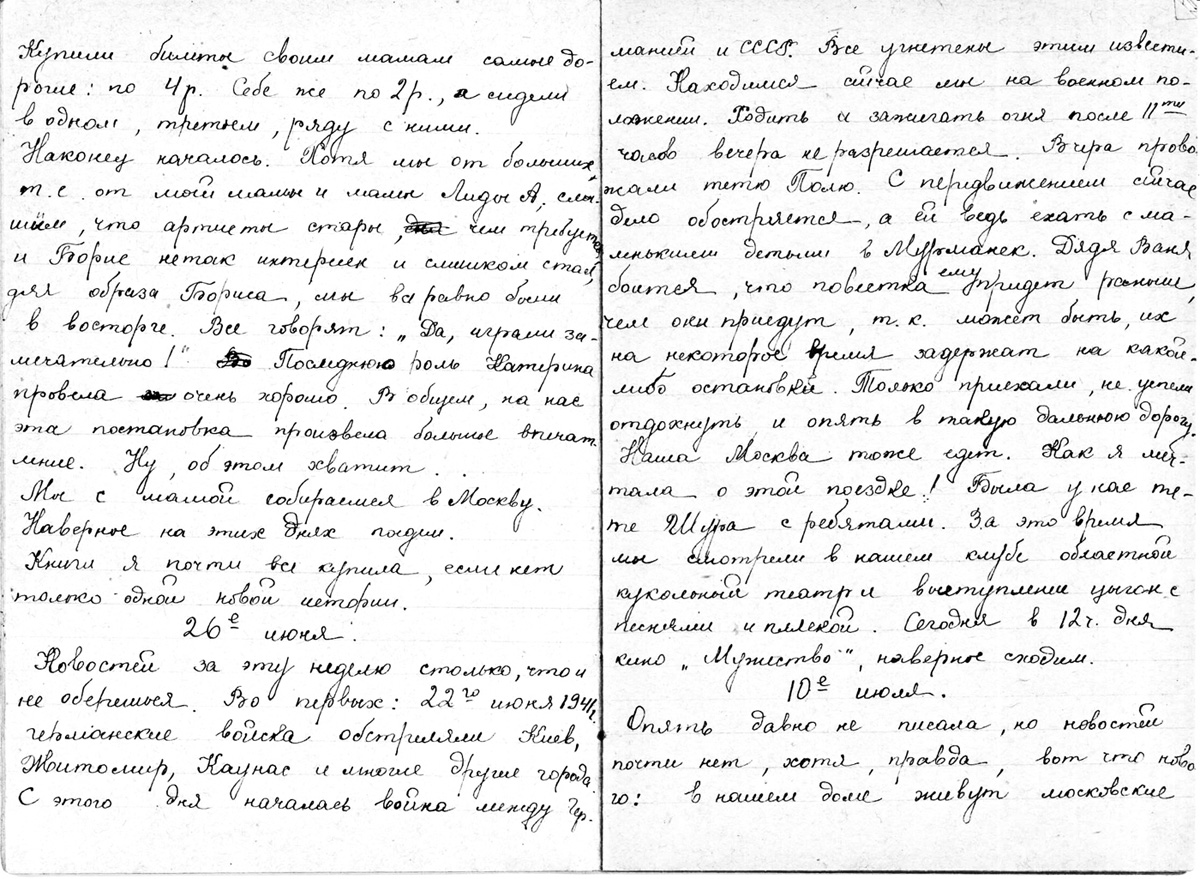 Купили билеты своим мамам самые до-
рогие: по 4р. Себе же по 2р., а сидели
в одном, третьем, ряду с ними.
Наконец началось. Хотя мы от больших,
т.е. от моей мамы и мамы Лиды А, слы-
шим, что артисты стары, чем требуется,
и Борис не так интересен и слишком стар,
для образа Бориса, мы все равно были
в восторге. Все говорят: „Да, играли за-
мечательно!" Последнюю роль Катерина
провела очень хорошо. В общем, на нас
эта постановка произвела большое впечат
ление. Ну, об этом хватит.
Мы с мамой собираемся в Москву.
Наверное на этих днях поедем.
Книги я почти все купила, если нет
только одной новой истории.
26е июня.
Новостей за эту неделю столько, что и
не оберешься. Во первых: 22го июня 1941г.
германские войска обстреляли Киев,
Житомир, Каунас и многие другие города.
С этого дня началась война между Гер-
манией и СССР. Все угнетены этим извести-
ем. Находимся сейчас мы на военном по-
ложении. Ходить и зажигать огня после 11ти
часов вечера не разрешается. Вчера прово-
жали тетю Полю. С передвижением сейчас
дело обостряется, а ей ведь ехать с ма-
ленькими детьми в Мурманск. Дядя Ваня
боится, что повестка ему придет раньше,
чем они приедут, т.к. может быть, их
на некоторое время задержат на какой-
либо остановке. Только приехали, не успели
отдохнуть и опять в такую дальнюю дорогу.
Наша Москва тоже едет. Как я меч-
тала о этой поездке! Была у нас те-
тя Шура с ребятами. За это время
мы смотрели в нашем клубе областной
кукольный театр и выступление цыган с
песнями и пляской. Сегодня в 12ч. дня
кино „Мужество", наверное сходим.
10е июля.
Опять давно не писала, но новостей
почти нет, хотя, правда, вот что ново
го: в нашем доме живут московские